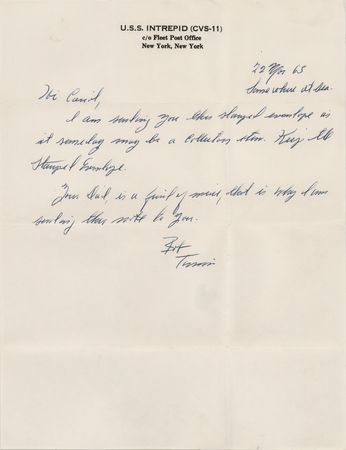 U.S.S. INTREPID (CVS-11)
c/o Fleet Post Office
New York, New York
22 Mar 65
Somewhere at sea.
Hi Carol,
I am sending you this stamped envelope as
it someday may be a Collectors item. Keep the
Stamped Envelope.
Your Dad, is a friend of mine, that is why I am
sending this note to you.